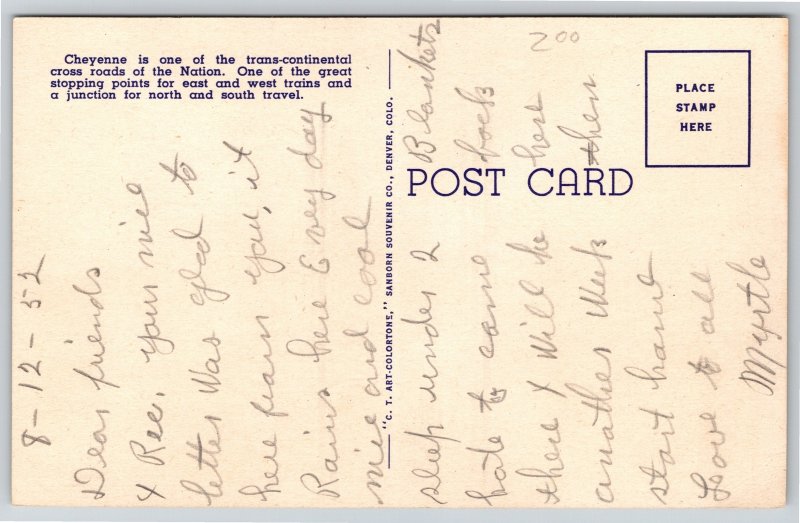 Cheyenne is one of the trans-continental
cross roads of the Nation. One of the great
stopping points for east and west trains and
a junction for north and south travel.
"C. T. ART-COLORTONE," SANBORN SOUVENIR CO., DENVER, COLO.
POST CARD
PLACE
STAMP
HERE
200
8-12-52
Dear friends
& Rec. your nice
letter Was glad to
here from you, it
Rains here Every day
nice and cool
sleep under 2 Blankets
hate to come back
there & Will be here
another Week then
start home
Love to all
Myrtle